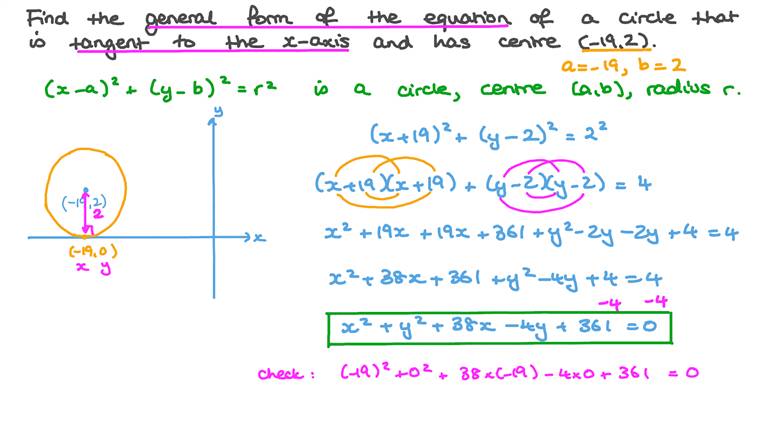 Find the general form of the equation of a circle that
is tangent to the x-axis and has centre (-19,2).
a=-19, b=2
(x-a)² + (y-b)² = r² is a circle, centre (a,b), radius r.
y
(x+19)² + (y-2)² = 2²
(x+19)(x+19) + (y-2)(y-2) = 4
(-19,2)
2
x
(-19,0)
x y
x² + 19x + 19x + 361 + y² - 2y - 2y + 4 = 4
x² + 38x + 361 + y² - 4y + 4 = 4
-4 -4
x² + y² + 38x - 4y + 361 = 0
check: (-19)² + 0² + 38×(-19) - 4×0 + 361 = 0